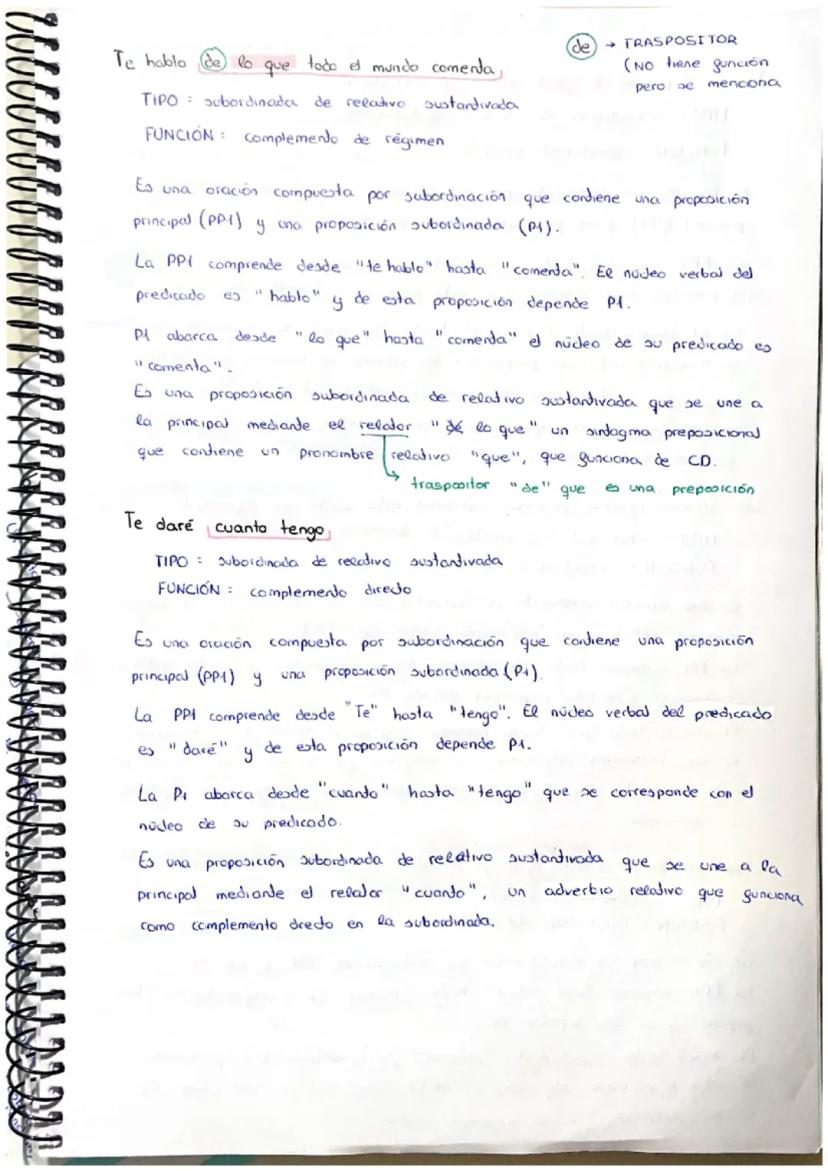 Te hablo de lo que todo el mundo comenta
de → TRASPOSITOR
(NO tiene función
pero se menciona
TIPO : subordinada de relativo sustantivada
FUNCIÓN : complemento de régimen
Es una oración compuesta por subordinación que contiene una proposición
principal (PP1) y una proposición subordinada (P1).
La PP1 comprende desde "te hablo" hasta "comenta". El núcleo verbal del
predicado es "hablo" y de esta proposición depende P1.
P1 abarca desde "lo que" hasta "comenta" el núcleo de su predicado es
"comenta".
Es una proposición subordinada de relativo sustantivada que se une a
la principal mediante el relator "de lo que" un sintagma preposicional
que contiene un pronombre relativo "que", que funciona de CD.
→ traspositor "de" que es una preposición
Te daré cuanto tengo
TIPO : subordinada de relativo sustantivada
FUNCIÓN : complemento directo
Es una oración compuesta por subordinación que contiene una proposición
principal (PP1) y una proposición subordinada (P1).
La PP1 comprende desde "Te" hasta "tengo". El núcleo verbal del predicado
es "daré" y de esta proposición depende P1.
La P1 abarca desde "cuanto" hasta "tengo" que se corresponde con el
núcleo de su predicado.
Es una proposición subordinada de relativo sustantivada que se une a la
principal mediante el relator "cuanto", un adverbio relativo que funciona
como complemento directo en la subordinada.